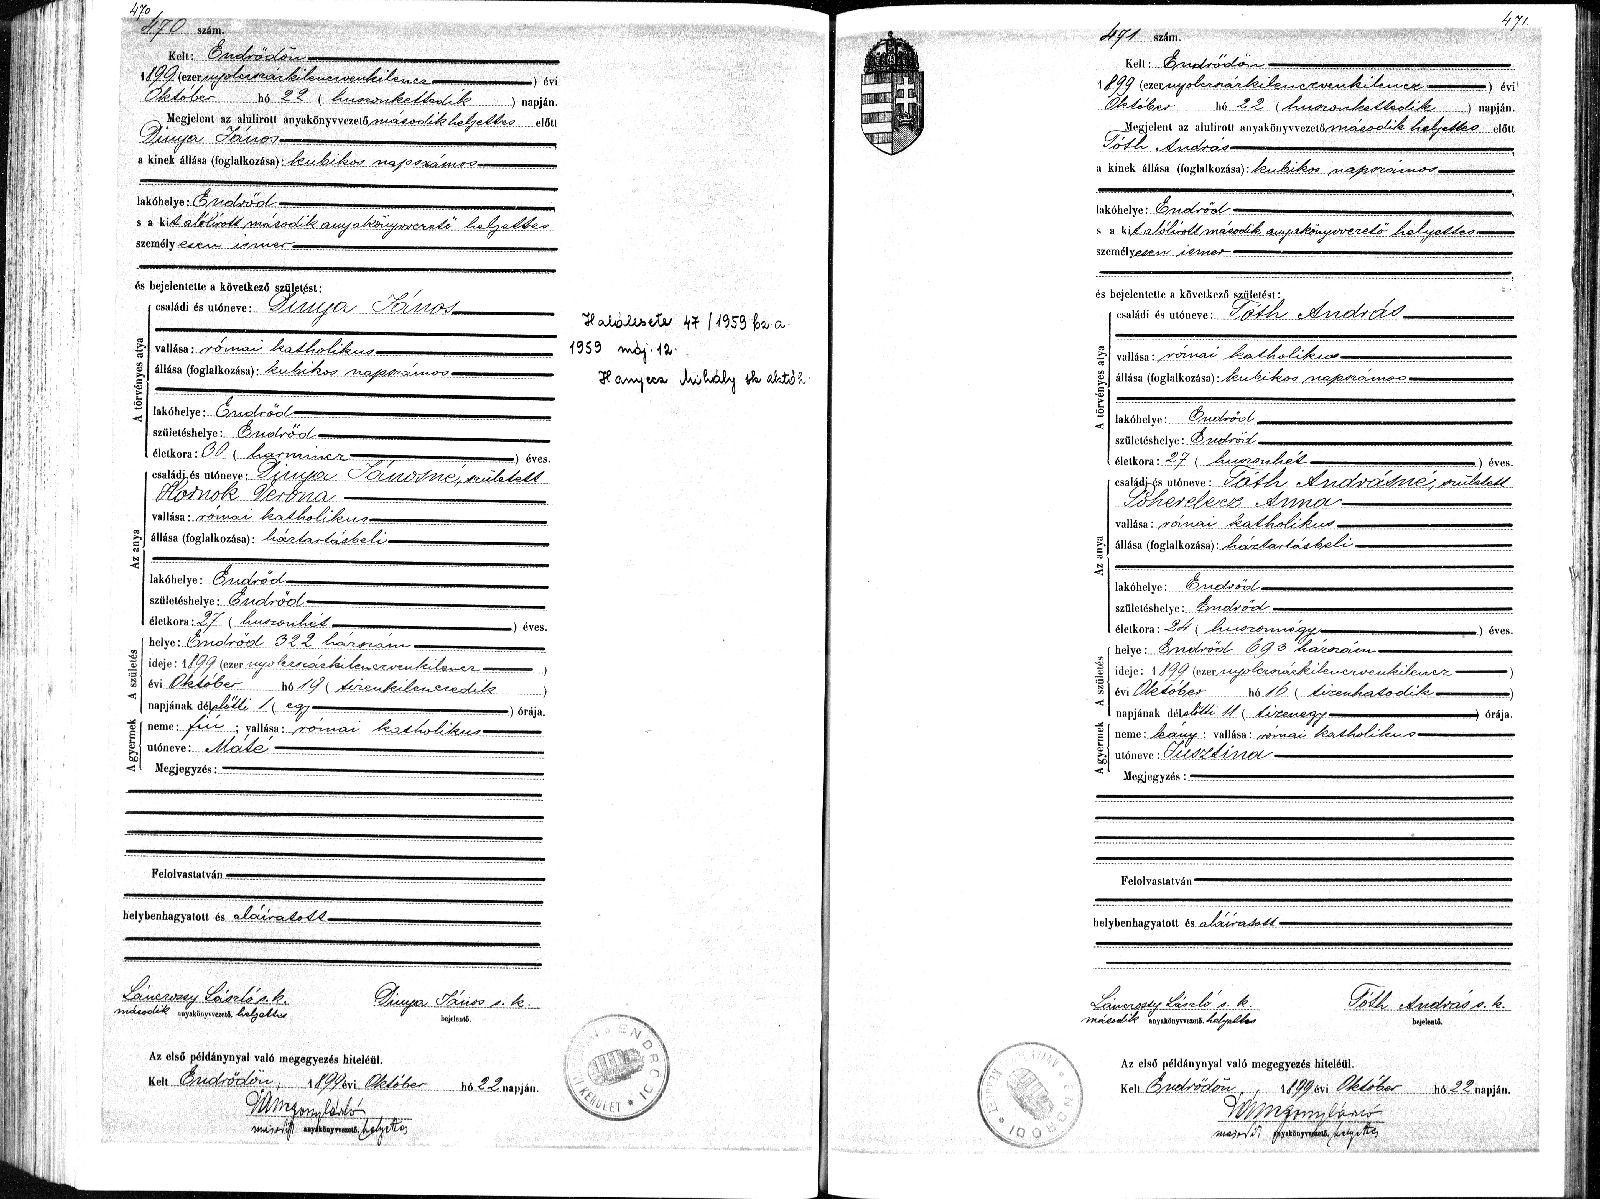 470
470 szám.
Kelt: Endrődön
1899 (ezernyolczszázkilenczvenkilencz) évi
Október hó 22 (huszonkettedik) napján.
Megjelent az alulirott anyakönyvvezető második helyettes előtt
Dinya János
a kinek állása (foglalkozása): kubikos napszámos
lakóhelye: Endrőd
s a kit alólirott második anyakönyvvezető helyettes
személyesen ismer
és bejelentette a következő születést:
A törvényes atya
családi és utóneve: Dinya János
vallása: római katholikus
állása (foglalkozása): kubikos napszámos
lakóhelye: Endrőd
születéshelye: Endrőd
életkora: 30 (harmincz) éves.
Az anya
családi és utóneve: Dinya Jánosné, született
Hornok Verona
vallása: római katholikus
állása (foglalkozása): háztartásbeli
lakóhelye: Endrőd
születéshelye: Endrőd
életkora: 27 (huszonhét) éves.
A születés
helye: Endrőd 322 házszám
ideje: 1899 (ezernyolczszázkilenczvenkilencz)
évi Október hó 19 (tizenkilenczedik)
napjának délelőtti 1 (egy) órája.
A gyermek
neme: fiú; vallása: római katholikus
utóneve: Máté
Megjegyzés:
Felolvastatván
helybenhagyatott és aláiratott
Lánczossy László s. k. Dinya János s. k.
második anyakönyvvezető. helyettes bejelentő.
Az első példánynyal való megegyezés hiteléül.
Kelt Endrődön, 1899 évi Október hó 22 napján.
második anyakönyvvezető. helyettes
Halálesete 47/1959 fsz a.
1959 máj. 12.
Hanyecz Mihály sk
ENDRŐDI KERÜLET
471
471 szám.
Kelt: Endrődön
1899 (ezernyolczszázkilenczvenkilencz) évi
Október hó 22 (huszonkettedik) napján.
Megjelent az alulirott anyakönyvvezető második helyettes előtt
Tóth András
a kinek állása (foglalkozása): kubikos napszámos
lakóhelye: Endrőd
s a kit alólirott második anyakönyvvezető helyettes
személyesen ismer
és bejelentette a következő születést:
A törvényes atya
családi és utóneve: Tóth András
vallása: római katholikus
állása (foglalkozása): kubikos napszámos
lakóhelye: Endrőd
születéshelye: Endrőd
életkora: 27 (huszonhét) éves.
Az anya
családi és utóneve: Tóth Andrásné, született
Anna
vallása: római katholikus
állása (foglalkozása): háztartásbeli
lakóhelye: Endrőd
születéshelye: Endrőd
életkora: 24 (huszonnégy) éves.
A születés
helye: Endrőd 693 házszám
ideje: 1899 (ezernyolczszázkilenczvenkilencz)
évi Október hó 16 (tizenhatodik)
napjának délelőtti 11 (tizenegy) órája.
A gyermek
neme: leány; vallása: római katholikus
utóneve: Jusztina
Megjegyzés:
Felolvastatván
helybenhagyatott és aláiratott
Lánczossy László s. k. Tóth András s. k.
második anyakönyvvezető. helyettes bejelentő.
Az első példánynyal való megegyezés hiteléül.
Kelt Endrődön, 1899 évi Október hó 22 napján.
második anyakönyvvezető. helyettes